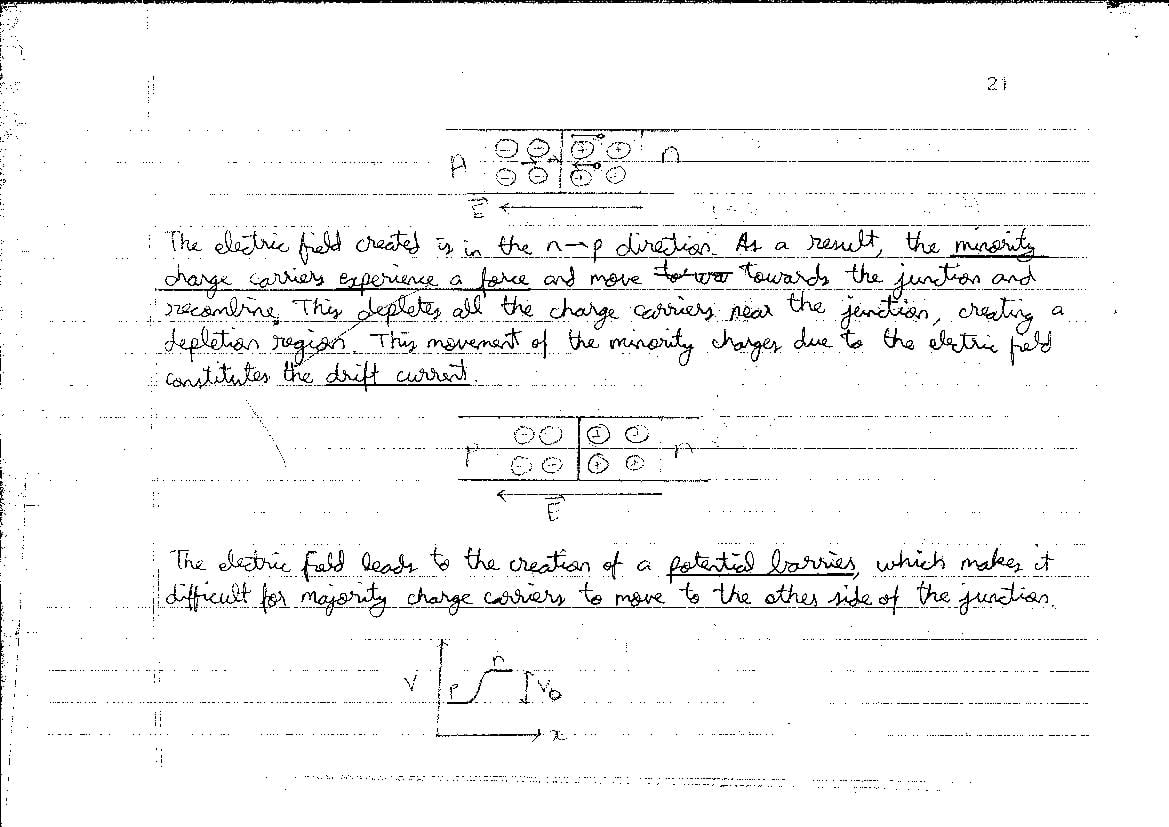 21
p n
E
The electric field created is in the n→p direction. As a result, the minority
charge carriers experience a force and move towards the junction and
recombine. This depletes all the charge carriers near the junction, creating a
depletion region. This movement of the minority charges due to the electric field
constitutes the drift current.
p n
E
The electric field leads to the creation of a potential barrier, which makes it
difficult for majority charge carriers to move to the other side of the junction.
n
V p V₀
x